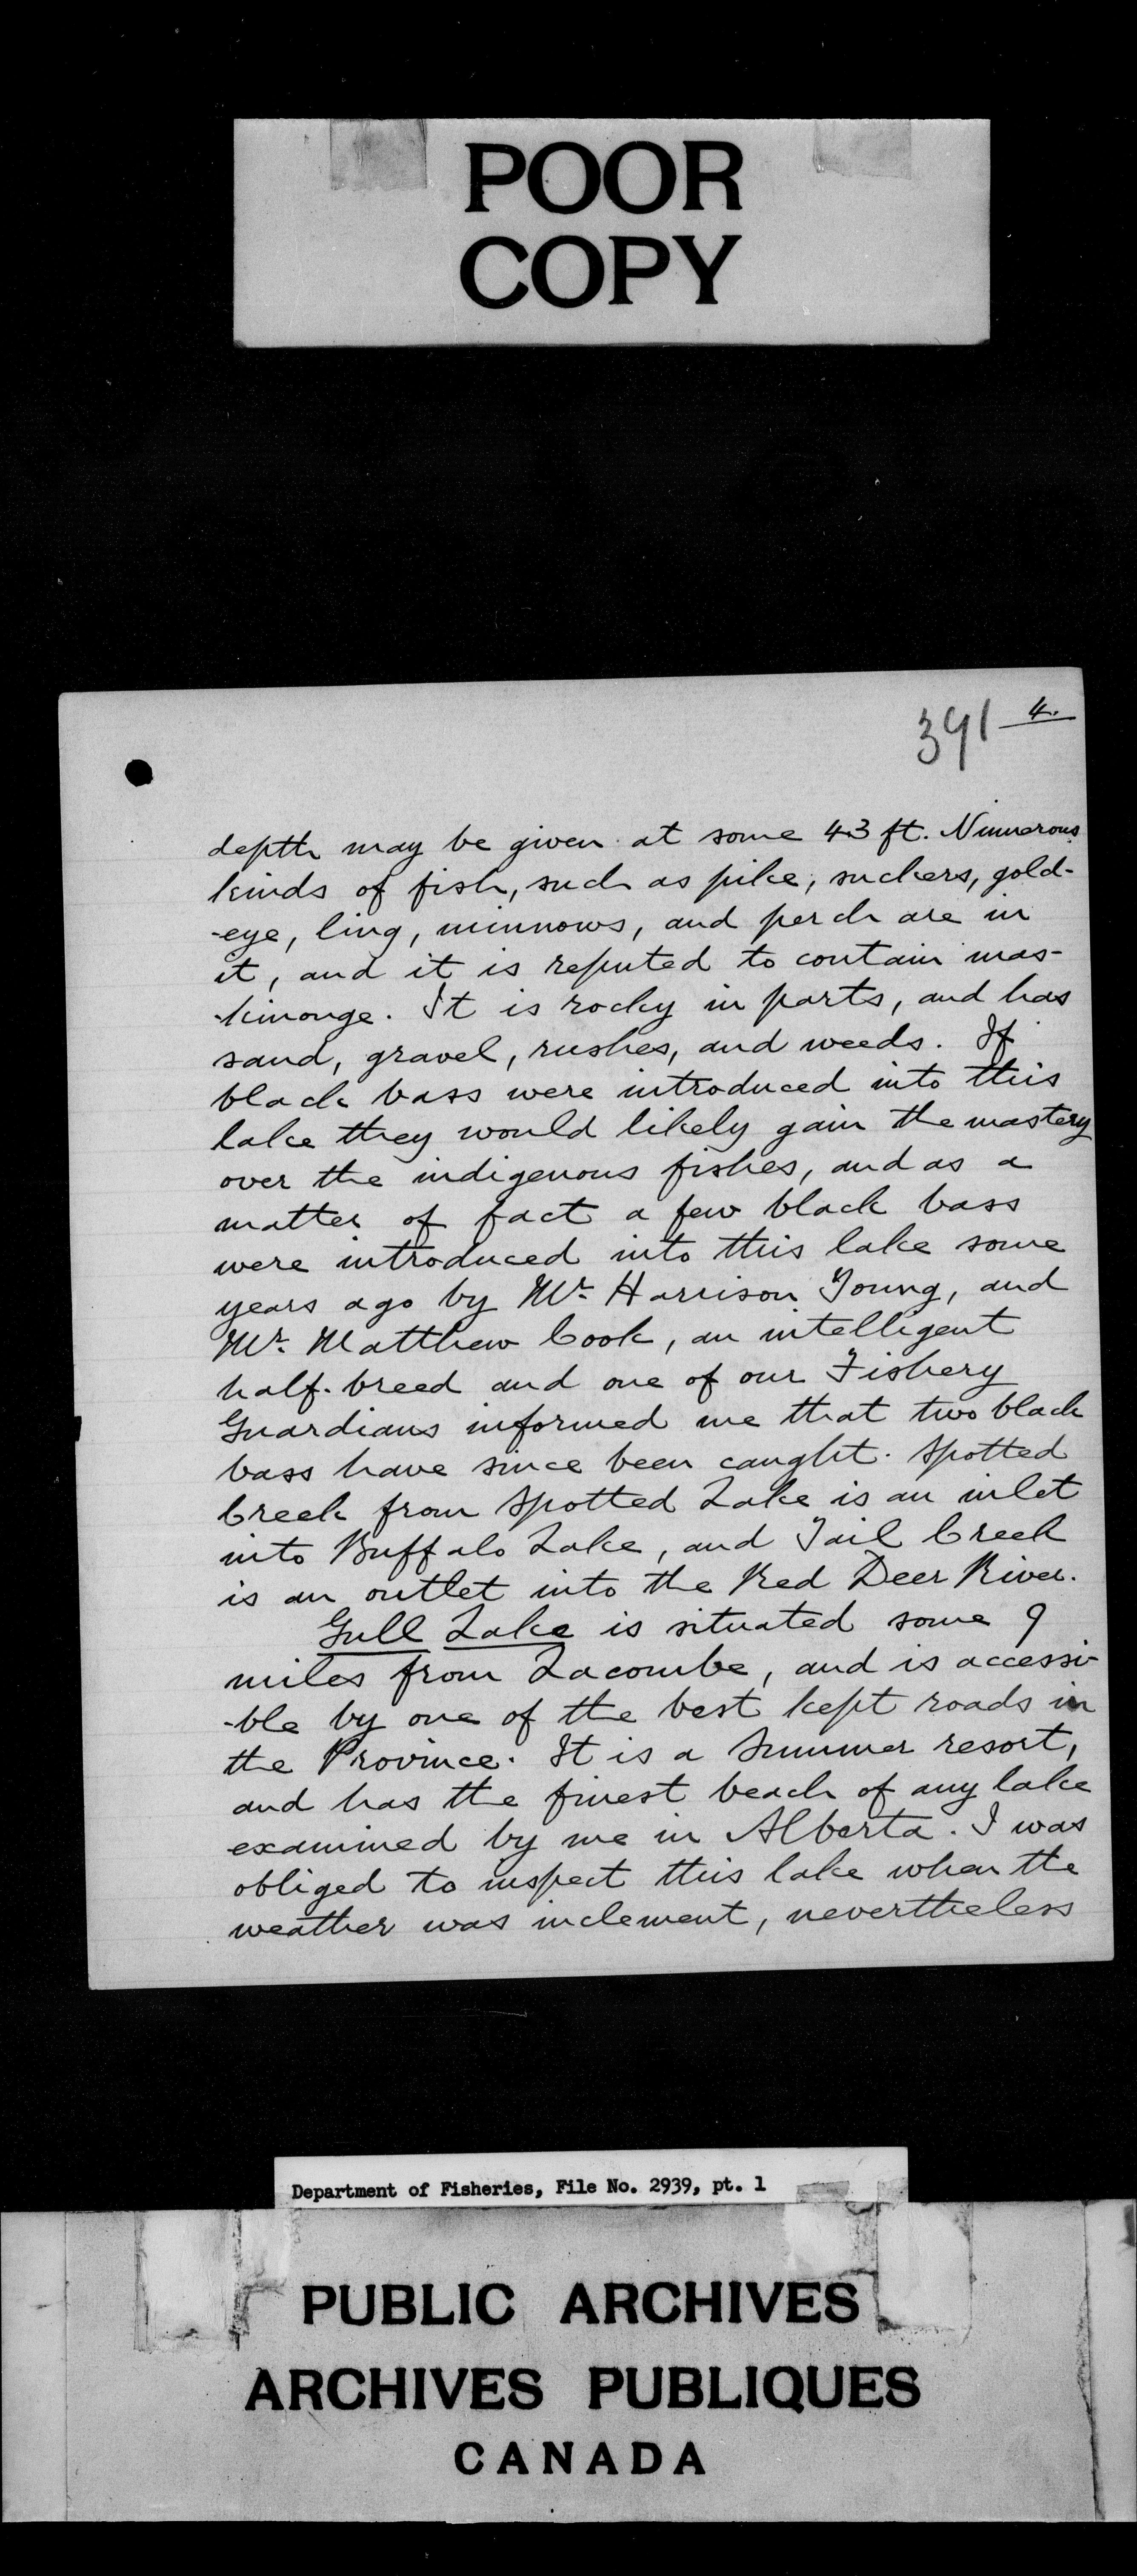 POOR
COPY
391 4.
depth may be given at some 43 ft. Numerous
kinds of fish, such as pike, suckers, gold-
-eye, ling, minnows, and perch are in
it, and it is reputed to contain mas-
-kinonge. It is rocky in parts, and has
sand, gravel, rushes, and weeds. If
black bass were introduced into this
lake they would likely gain the mastery
over the indigenous fishes, and as a
matter of fact a few black bass
were introduced into this lake some
years ago by Mr. Harrison Young, and
Mr. Matthew Cook, an intelligent
half-breed and one of our Fishery
Guardians informed me that two black
bass have since been caught. Spotted
Creek from Spotted Lake is an inlet
into Buffalo Lake, and Tail Creek
is an outlet into the Red Deer River.
Gull Lake is situated some 9
miles from Lacombe, and is accessi-
-ble by one of the best kept roads in
the Province. It is a Summer resort,
and has the finest beach of any lake
examined by me in Alberta. I was
obliged to inspect this lake when the
weather was inclement, nevertheless
Department of Fisheries, File No. 2939, pt. 1
PUBLIC ARCHIVES
ARCHIVES PUBLIQUES
CANADA